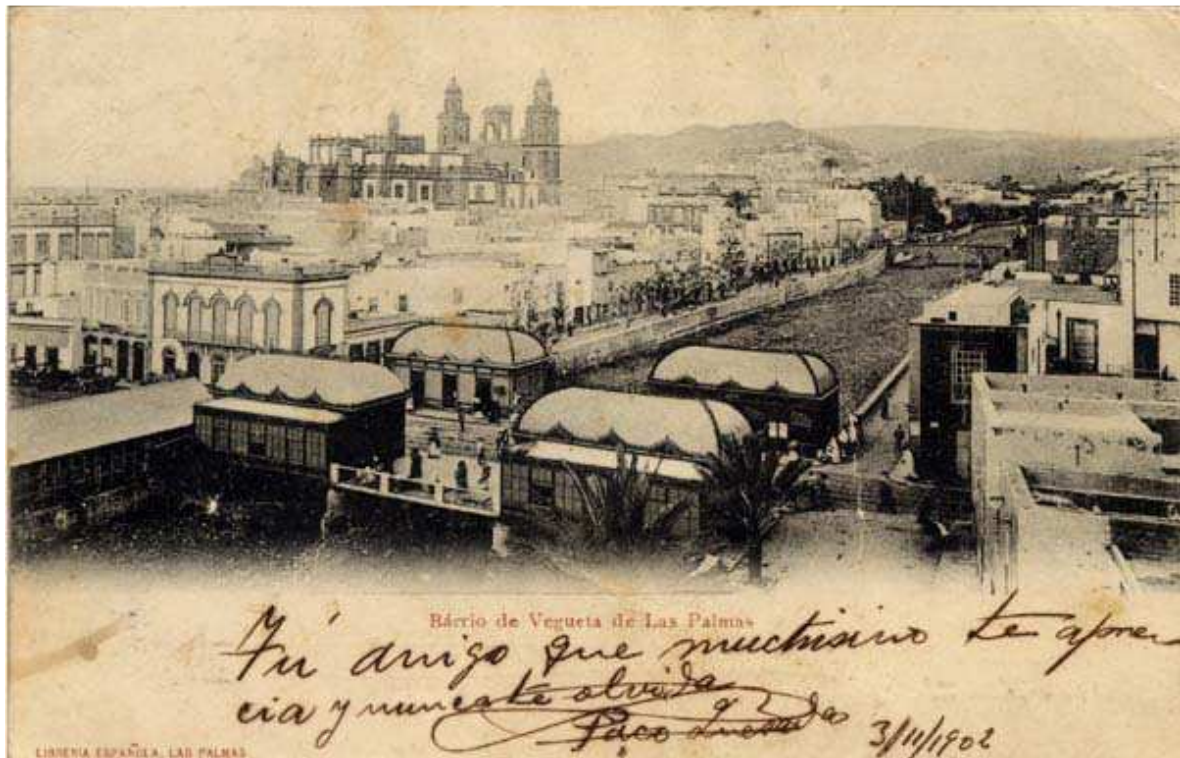 Bárrio de Vegueta de Las Palmas
Tú amigo que muchisimo te apre
cia y nunca te olvida
Paco Quesada
3/11/1902
LIBRERIA ESPAÑOLA, LAS PALMAS